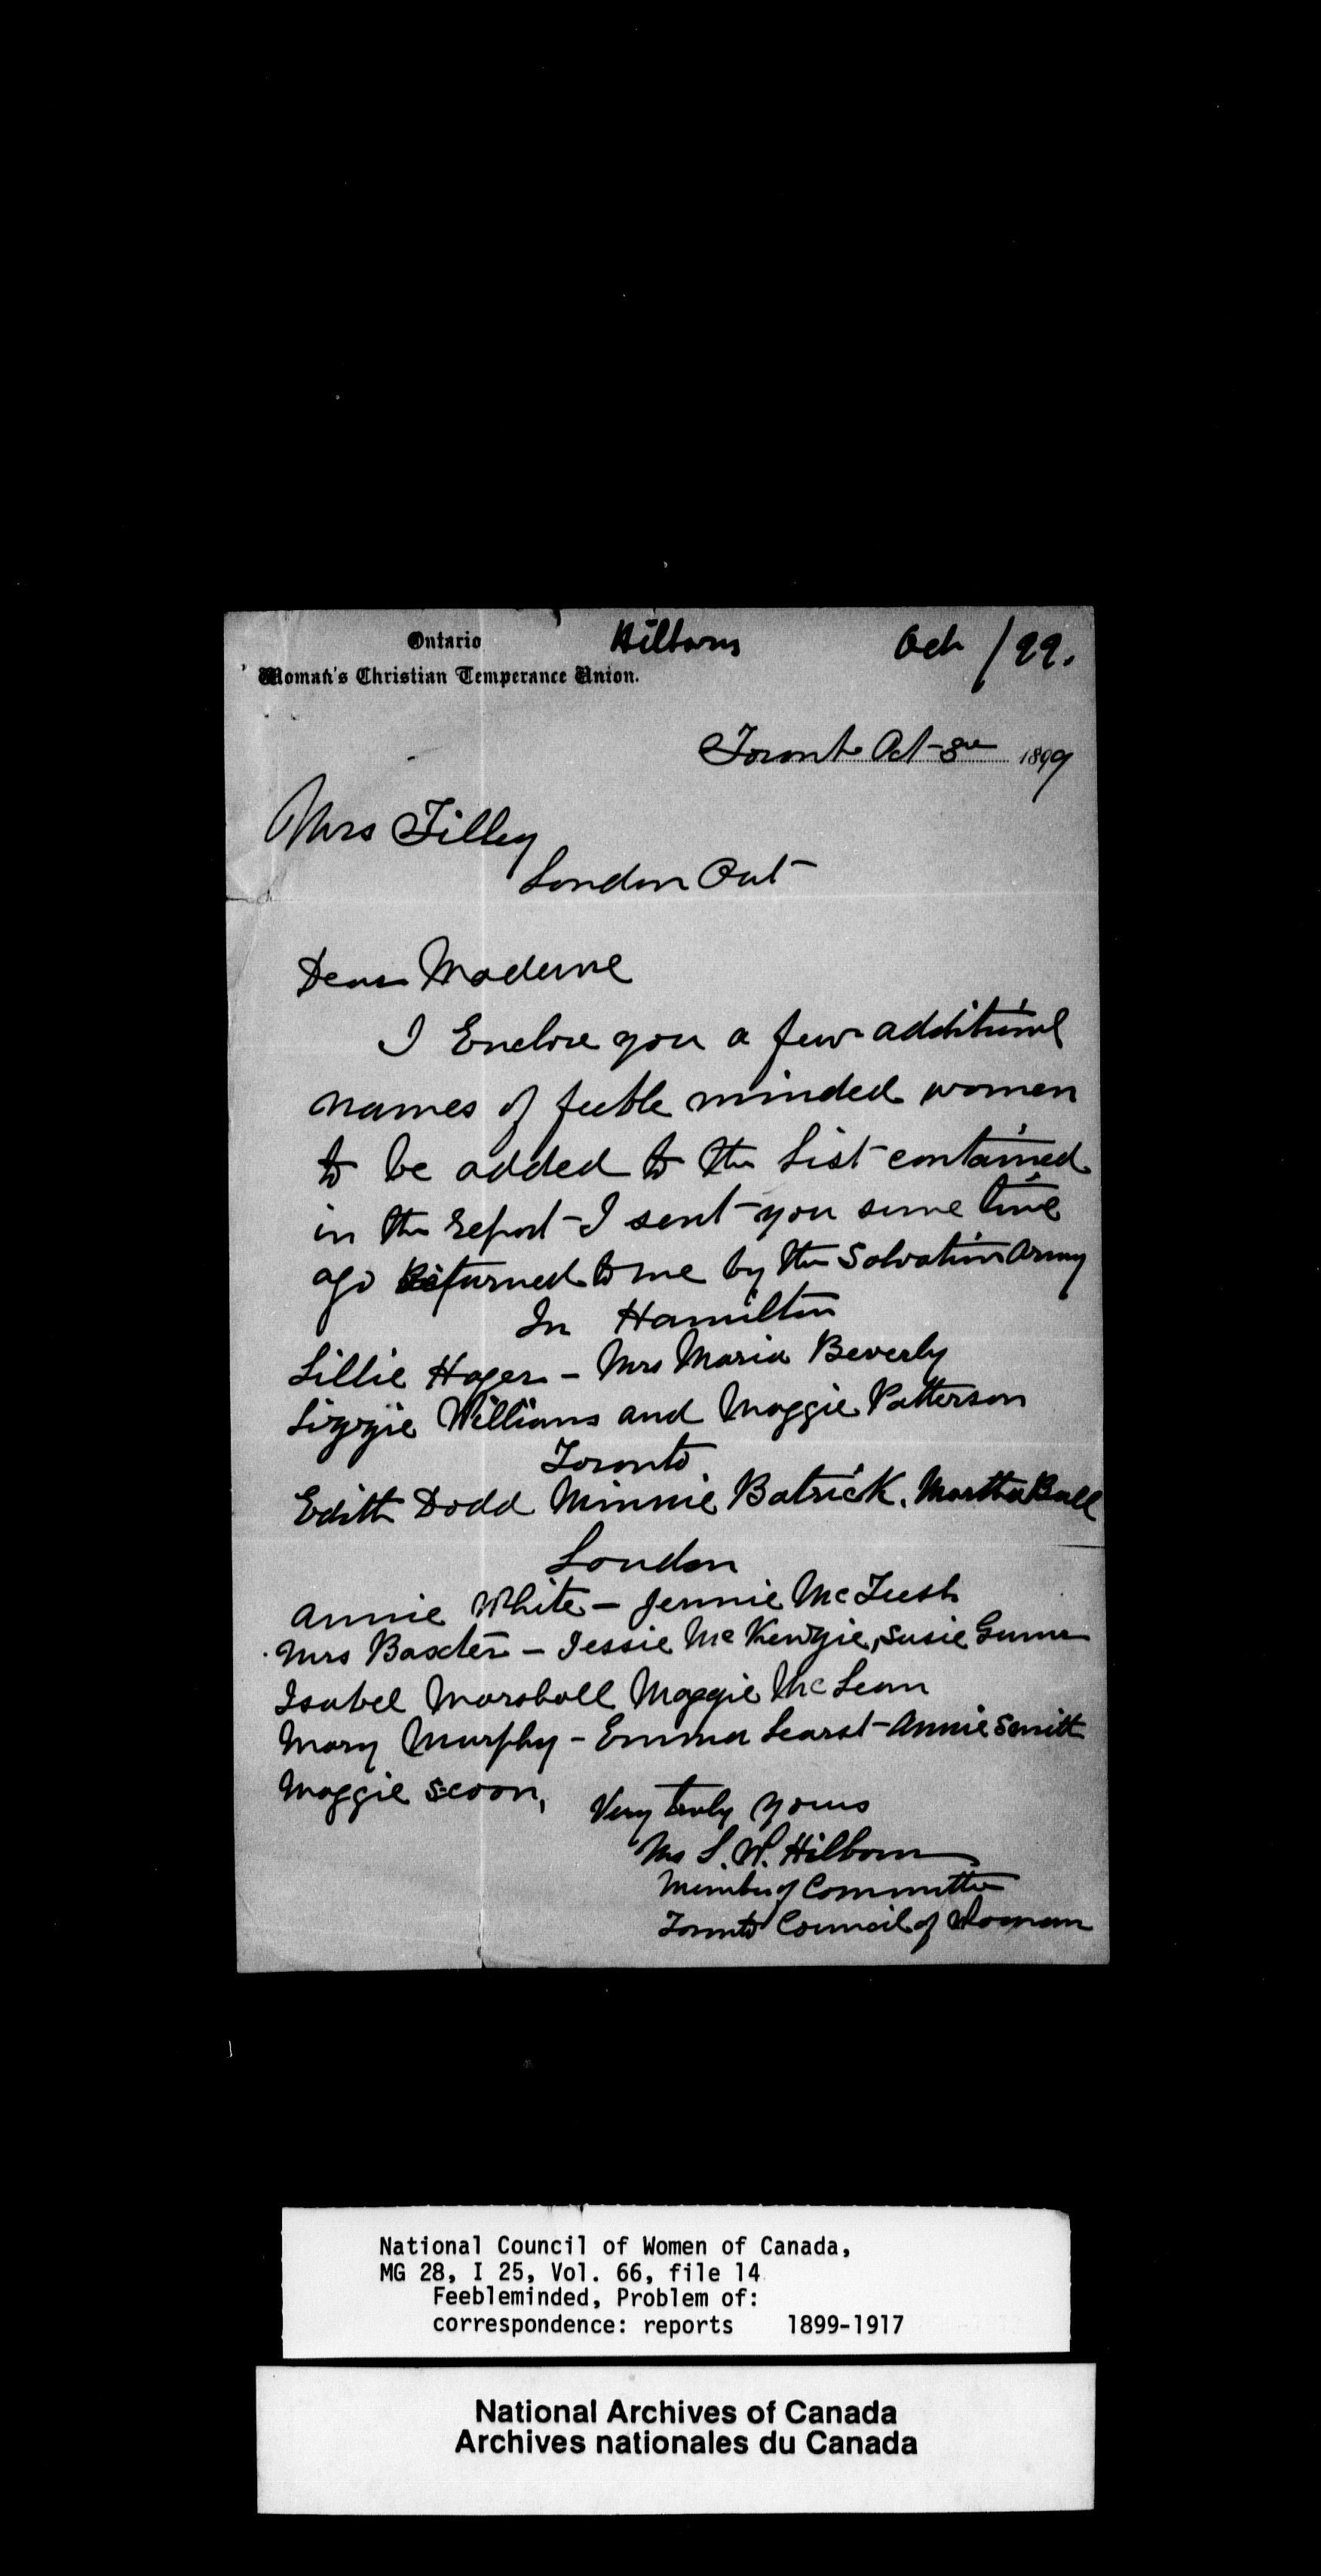 Ontario Hilborn Oct /99.
Woman's Christian Temperance Union.
Toronto Oct 1899
Mrs Tilley
London Ont
Dear Madame
I Enclose you a few additional
names of feeble minded women
to be added to the List contained
in the report I sent you some time
ago Returned to me by the Salvation Army
In Hamilton
Lillie Hager - Mrs Maria Beverly
Lizzie Williams and Maggie Patterson
Toronto
Edith Dodd Minnie Batrick. Martha Ball
London
Annie White - Jennie
Mrs Baxter - Jessie McKenzie, Susie
Isabel Marshall Maggie McLean
Mary Murphy - Emma Learst - Annie Smith
Maggie Scoon,
Very truly yours
Mrs S. W. Hilborn
Member of Committee
Toronto Council of Woman
National Council of Women of Canada,
MG 28, I 25, Vol. 66, file 14
Feebleminded, Problem of:
correspondence: reports 1899-1917
National Archives of Canada
Archives nationales du Canada